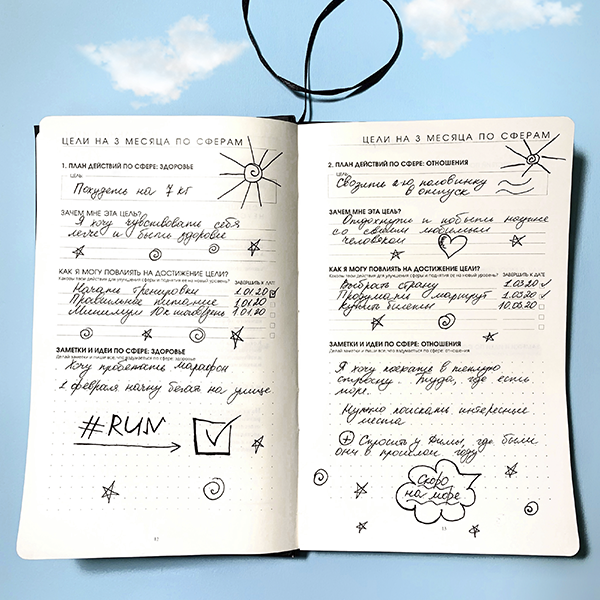 ЦЕЛИ НА 3 МЕСЯЦА ПО СФЕРАМ
1. ПЛАН ДЕЙСТВИЙ ПО СФЕРЕ: ЗДОРОВЬЕ
ЦЕЛЬ
Похудеть на 7 кг
ЗАЧЕМ МНЕ ЭТА ЦЕЛЬ?
Я хочу чувствовать себя
легче и быть здоровее
КАК Я МОГУ ПОВЛИЯТЬ НА ДОСТИЖЕНИЕ ЦЕЛИ?
Каковы твои действия для улучшения сферы и поднятия ее на новый уровень? ЗАВЕРШИТЬ К ДАТЕ
Начать тренировки 1.01.20
Правильное питание 1.01.20
Минимум 10к шагов/день 1.01.20
ЗАМЕТКИ И ИДЕИ ПО СФЕРЕ: ЗДОРОВЬЕ
Делай заметки и пиши все, что вздумается по сфере: здоровье
Хочу пробежать марафон
1 февраля начну бегать на улице
#RUN
ЦЕЛИ НА 3 МЕСЯЦА ПО СФЕРАМ
2. ПЛАН ДЕЙСТВИЙ ПО СФЕРЕ: ОТНОШЕНИЯ
ЦЕЛЬ
Свозить 2-ю половинку
в отпуск
ЗАЧЕМ МНЕ ЭТА ЦЕЛЬ?
Отдохнуть и побыть наедине
со своим любимым
человеком
КАК Я МОГУ ПОВЛИЯТЬ НА ДОСТИЖЕНИЕ ЦЕЛИ?
Каковы твои действия для улучшения сферы и поднятия ее на новый уровень? ЗАВЕРШИТЬ К ДАТЕ
Выбрать страну 1.03.20
Продумать маршрут 1.03.20
Купить билеты 10.03.20
ЗАМЕТКИ И ИДЕИ ПО СФЕРЕ: ОТНОШЕНИЯ
Делай заметки и пиши все, что вздумается по сфере: отношения
Я хочу поехать в теплую
страну. Туда, где есть
море.
Нужно поискать интересные
места
+ Спросить у Димы, где были
они в прошлом году
Скоро
на море